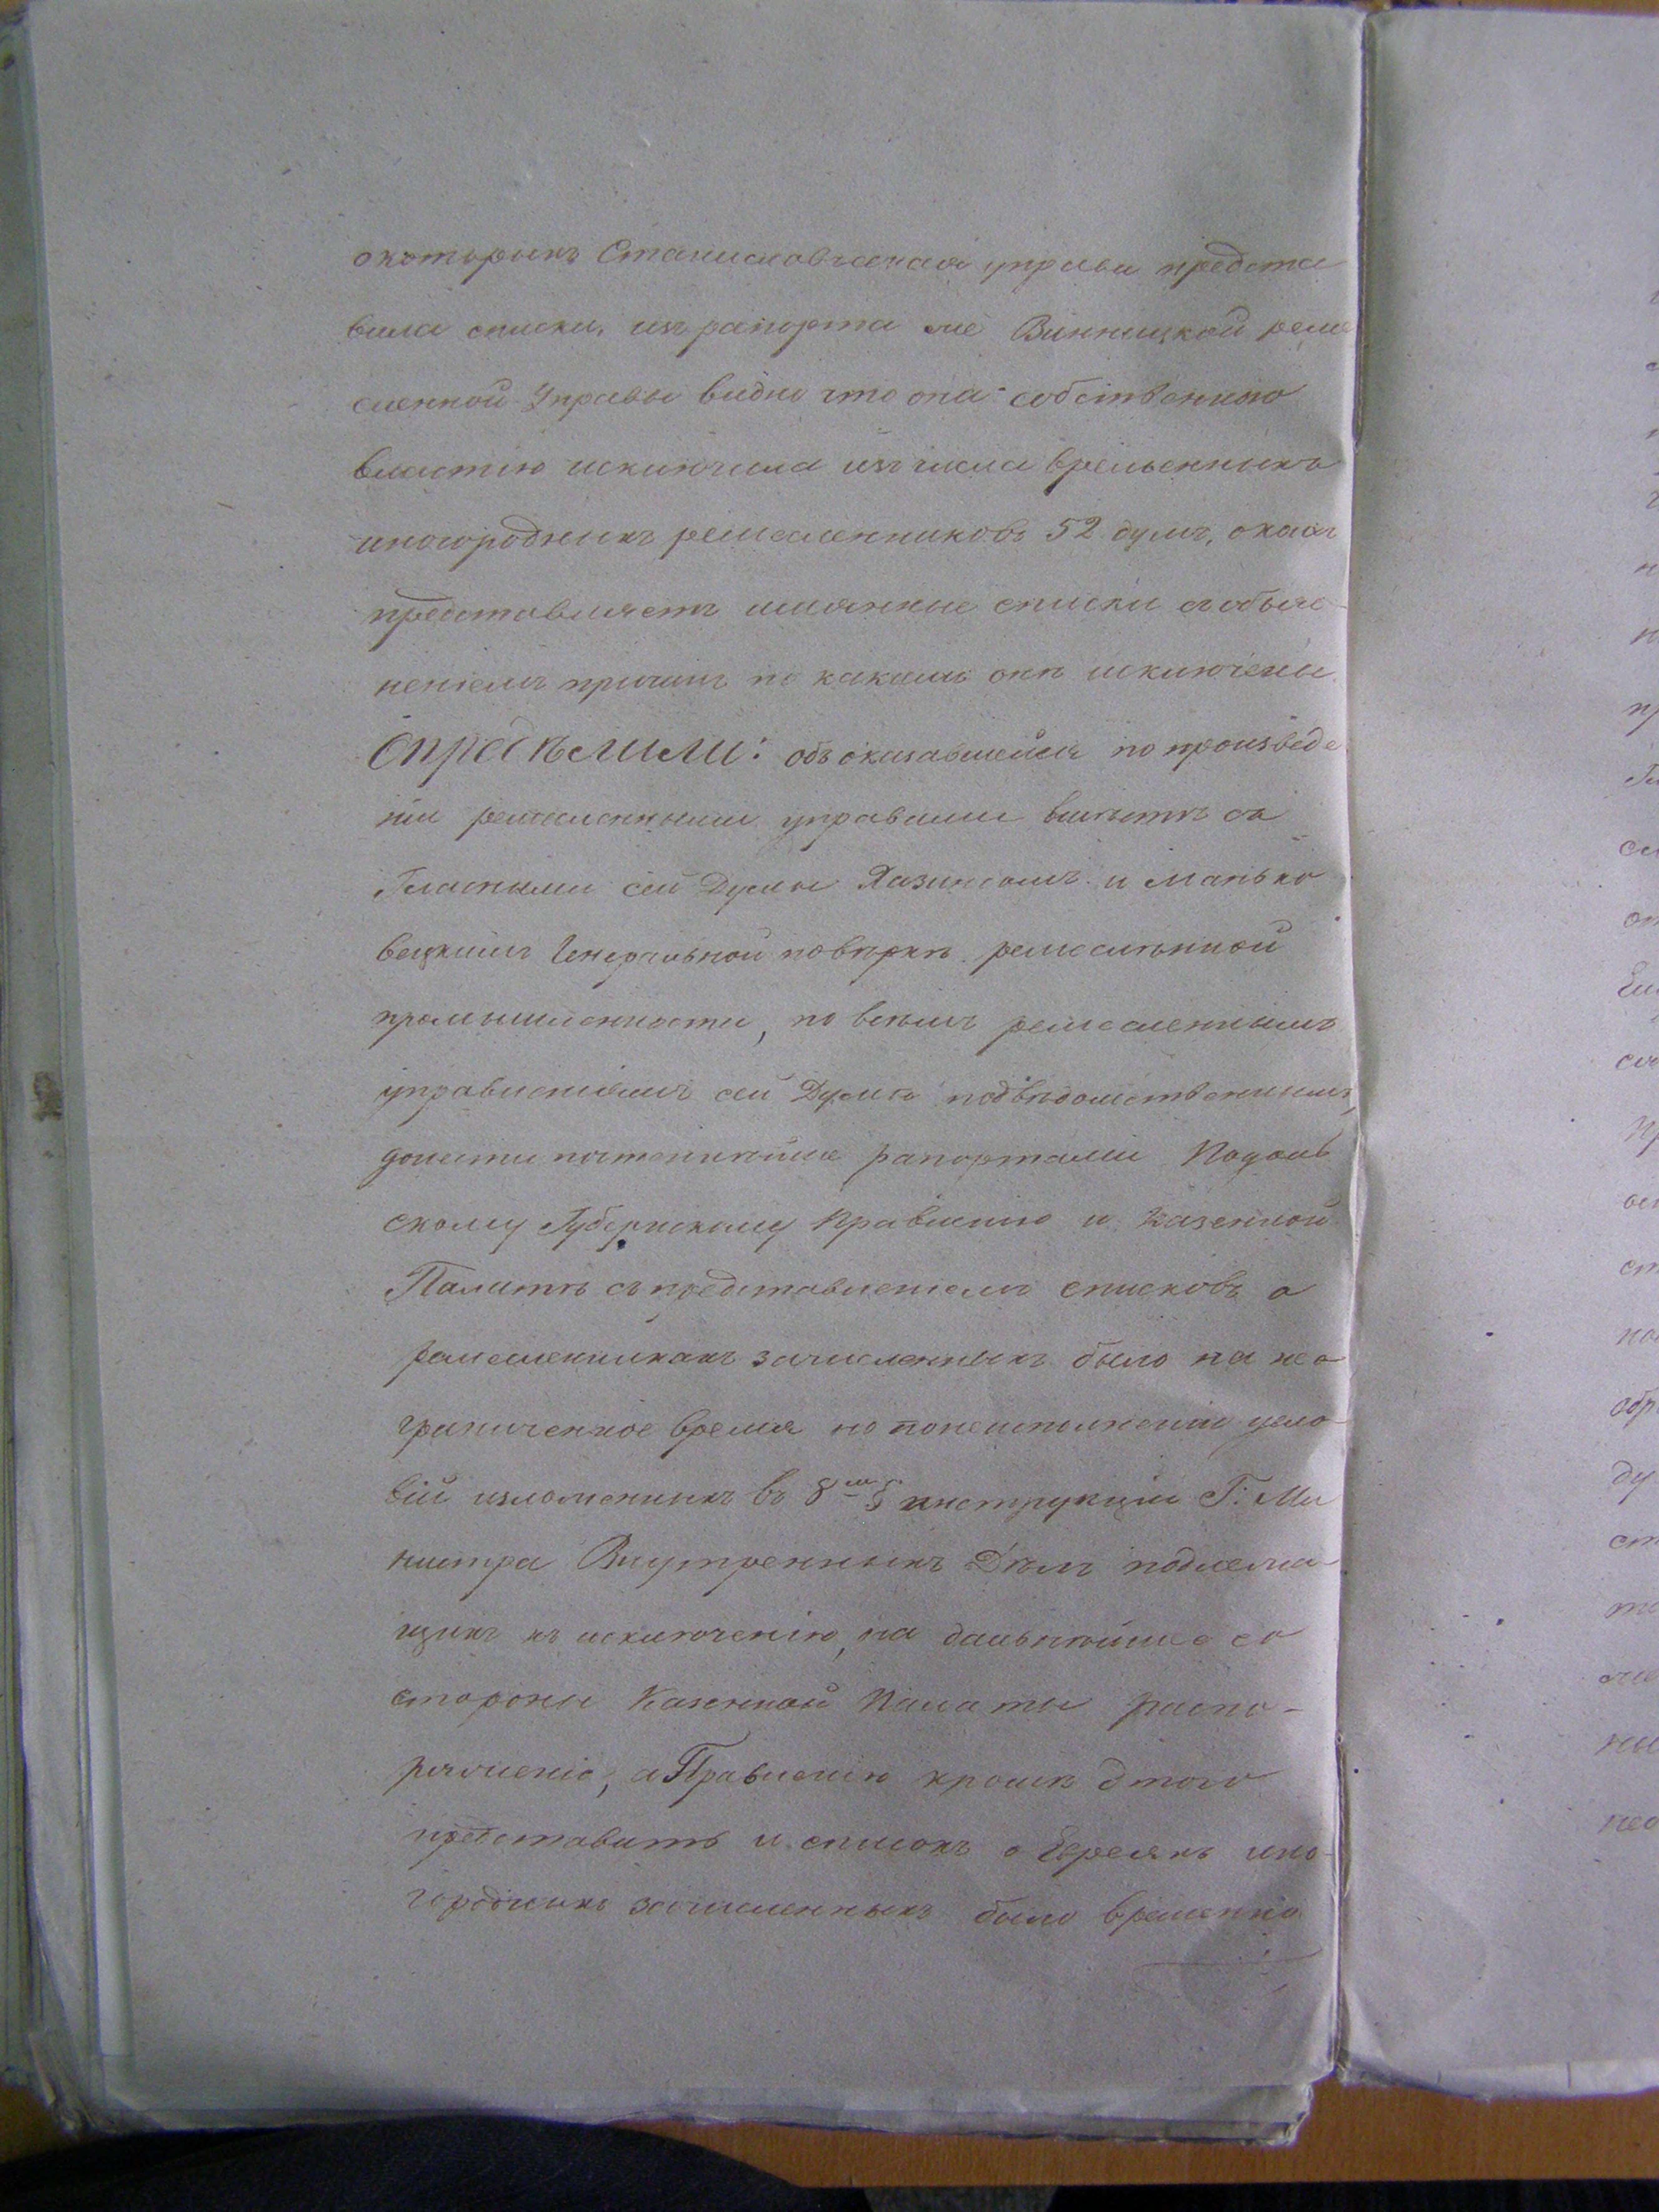 о которыхъ Станиславчская управа предста
вила списки, изъ рапорта же Винницкой реме
сленной Управы видно что она собственною
властію исключила изъ числа временныхъ
иногородныхъ ремесленниковъ 52 душъ, о коихъ
представляетъ имянные списки съ объяс
неніемъ причинъ по какимъ они исключены.
Опредѣлили: объ оказавшейся по произведе
ніи ремесленными управами вмѣстѣ съ
Гласными сей Думы Хазиномъ и Манько
вецкимъ Генеральной повѣркѣ ремесленной
промышленности, по всѣмъ ремесленнымъ
управленіямъ сей Думѣ подвѣдомственнымъ,
донести почтеннѣйше рапортами Подоль
скому Губернскому Правленію и Казенной
Палатѣ съ представленіемъ списковъ о
ремесленникахъ зачисленныхъ было на нео
граниченное время но по неисполненіи усло
вій изложенныхъ въ 8мъ § инструкціи Г: Ми
нистра Внутренныхъ Дѣлъ подлежа
щихъ къ исключенію, на дальнѣйшее со
стороны Казенной Палаты распо-
ряженіе, а Правленію кромѣ этого
представить и списокъ о Евреяхъ ино-
городныхъ зачисленныхъ было временно